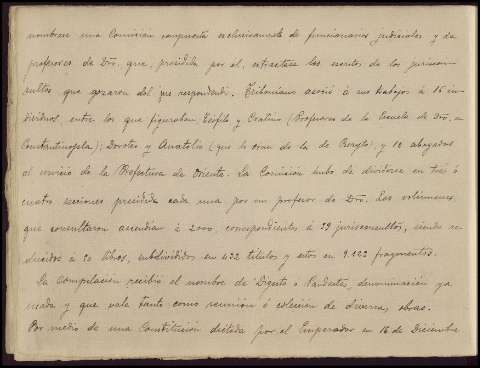 nombrase una Comisión compuesta exclusivamente de funcionarios judiciales y de
profesores de Dro. que, presidida por él, extractara los escritos de los juriscon-
sultos que gozaron del jus respondendi. Triboniano asoció á sus trabajos á 16 in-
dividuos, entre los que figuraban, Teófilo y Cratino (Profesores de la Escuela de Dro. en
Constantinopla) Doroteo y Anatolio (que lo eran de la de Beryto) y 12 abogados
al servicio de la Prefectura de Oriente. La Comisión hubo de dividirse en tres ó
cuatro secciones presidida cada una por un profesor de Dro. Los volúmenes
que consultaron ascendían á 2000, correspondientes á 39 jurisconsultos, siendo re-
ducidos á 50 libros, subdivididos en 432 títulos y estos en 9.122 fragmentos.
La Compilación recibió el nombre de Digesto ó Pandectas, denominación ya
usada y que vale tanto como reunión ó colección de diversas obras.
Por medio de una Constitución dictada por el Emperador en 16 de Diciembre